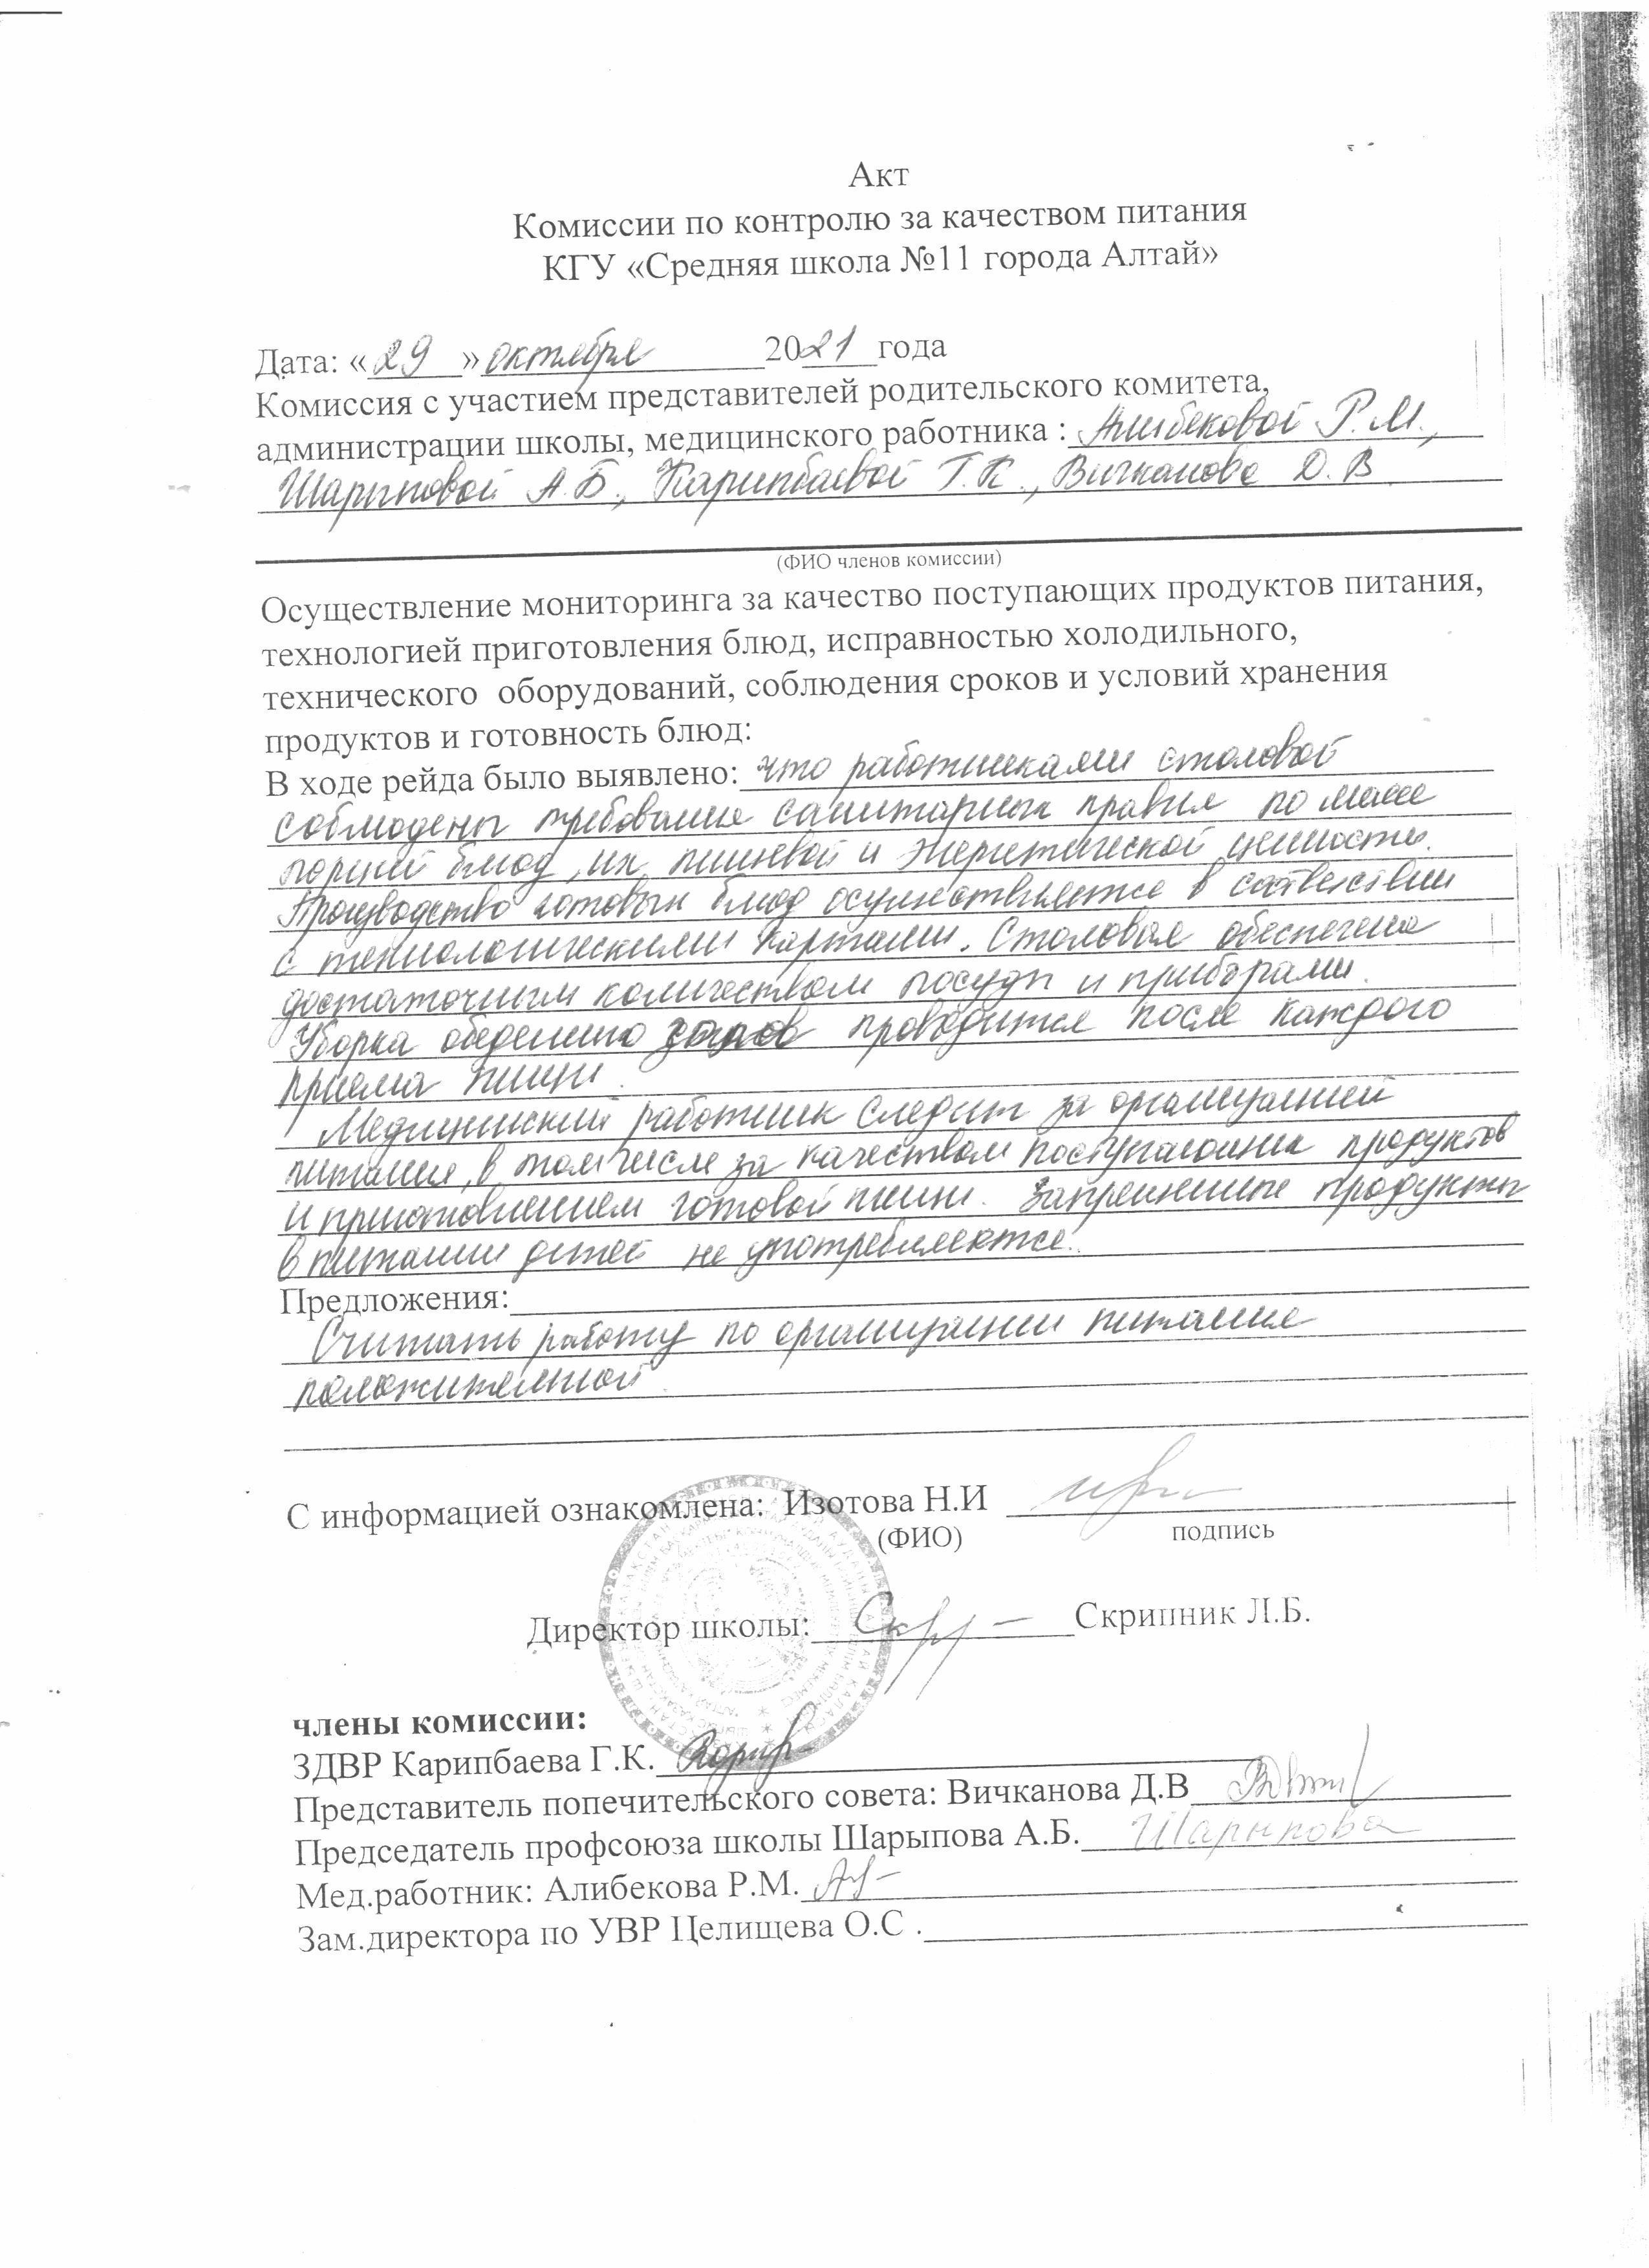 Акт
Комиссии по контролю за качеством питания
КГУ «Средняя школа №11 города Алтай»
Дата: «29» октября 2021 года
Комиссия с участием представителей родительского комитета,
администрации школы, медицинского работника : Алибековой Р.М.,
Шарыповой А.Б., Карипбаевой Г.К., Вичканова Д.В.
(ФИО членов комиссии)
Осуществление мониторинга за качество поступающих продуктов питания,
технологией приготовления блюд, исправностью холодильного,
технического оборудований, соблюдения сроков и условий хранения
продуктов и готовность блюд:
В ходе рейда было выявлено: что работниками столовой
соблюдены требования санитарных правил по массе
порций блюд, их пищевой и энергетической ценности.
Производство готовых блюд осуществляется в соответствии
с технологическими картами. Столовая обеспечена
достаточным количеством посуды и приборами.
Уборка обеденного проводится после каждого
приема пищи.
Медицинский работник следит за организацией
питания, в том числе за качеством поступающих продуктов
и приготовлением готовой пищи. Запрещенные продукты
в питании детей не употребляются.
Предложения:
Считать работу по организации питания
положительной.
С информацией ознакомлена: Изотова Н.И
(ФИО) подпись
Директор школы: Скрипник Л.Б.
члены комиссии:
ЗДВР Карипбаева Г.К.
Представитель попечительского совета: Вичканова Д.В
Председатель профсоюза школы Шарыпова А.Б. Шарыпова
Мед.работник: Алибекова Р.М.
Зам.директора по УВР Целищева О.С .